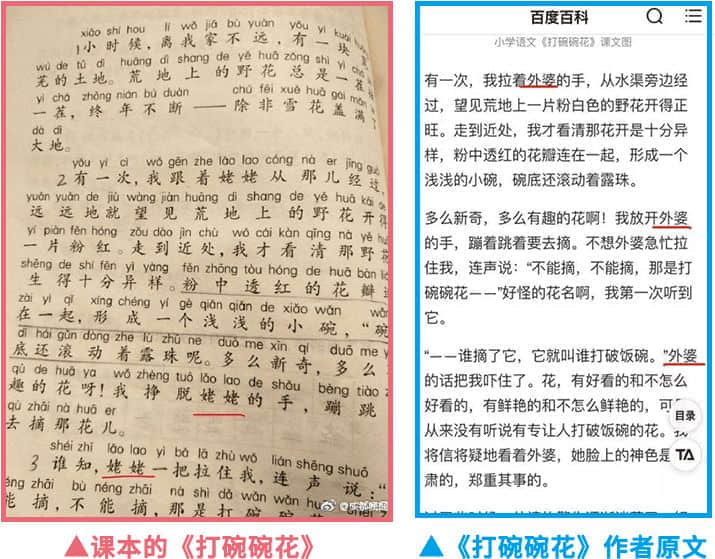 xiǎo shí hou lí wǒ jiā bù yuǎn yǒu yí kuài
1小时候，离我家不远，有一块
wú de tǔ dì huāng dì shang de yě huā zǒng shì yì chá
芜的土地。荒地上的野花总是一茬
yì chá zhōng nián bú duàn chú fēi xuě huā gài mǎn
一茬，终年不断——除非雪花盖满了
dà dì
大地。
yǒu yí cì wǒ gēn zhe lǎo lao cóng nà er jīng guò
2有一次，我跟着姥姥从那儿经过，
yuǎn yuǎn de jiù wàng jiàn huāng dì shang de yě huā kāi de
远远地就望见荒地上的野花开得
yí piàn fěn hóng zǒu dào jìn chù wǒ cái kàn qīng nà yě
一片粉红。走到近处，我才看清那野
shēng de shí fēn yì yàng fěn zhōng tòu hóng de huā bàn
生得十分异样。粉中透红的花瓣
zài yì qǐ xíng chéng yí gè qiǎn qiǎn de xiǎo wǎn wǎn
在一起，形成一个浅浅的小碗，“碗
dǐ hái gǔn dòng zhe lù zhū ne duō me xīn qí duō me
底还滚动着露珠呢。多么新奇，多么
qù de huā ya wǒ zhèng tuō lǎo lao de shǒu bèng tiào
趣的花呀！我挣脱姥姥的手，蹦跳
qù zhāi nà huā er
去摘那花儿。
shéi zhī lǎo lao yì bǎ lā zhù wǒ lián shēng shuō
3谁知，姥姥一把拉住我，连声说：“
néng zhāi bù néng zhāi nà shì dǎ wǎn wǎn
能摘，不能摘，那是打碗
▲课本的《打碗碗花》
百度百科
小学语文《打碗碗花》课文图
有一次，我拉着外婆的手，从水渠旁边经
过，望见荒地上一片粉白色的野花开得正
旺。走到近处，我才看清那花开是十分异
样，粉中透红的花瓣连在一起，形成一个
浅浅的小碗，碗底还滚动着露珠。
多么新奇，多么有趣的花啊！我放开外婆
的手，蹦着跳着要去摘。不想外婆急忙拉
住我，连声说：“不能摘，不能摘，那是打
碗碗花——”好怪的花名啊，我第一次听到
它。
“——谁摘了它，它就叫谁打破饭碗。”外婆
的话把我吓住了。花，有好看的和不怎么
好看的，有鲜艳的和不怎么鲜艳的，可
从来没有听说有专让人打破饭碗的花。我
将信将疑地看着外婆，她脸上的神色是
肃的，郑重其事的。
目录
TA
▲《打碗碗花》作者原文